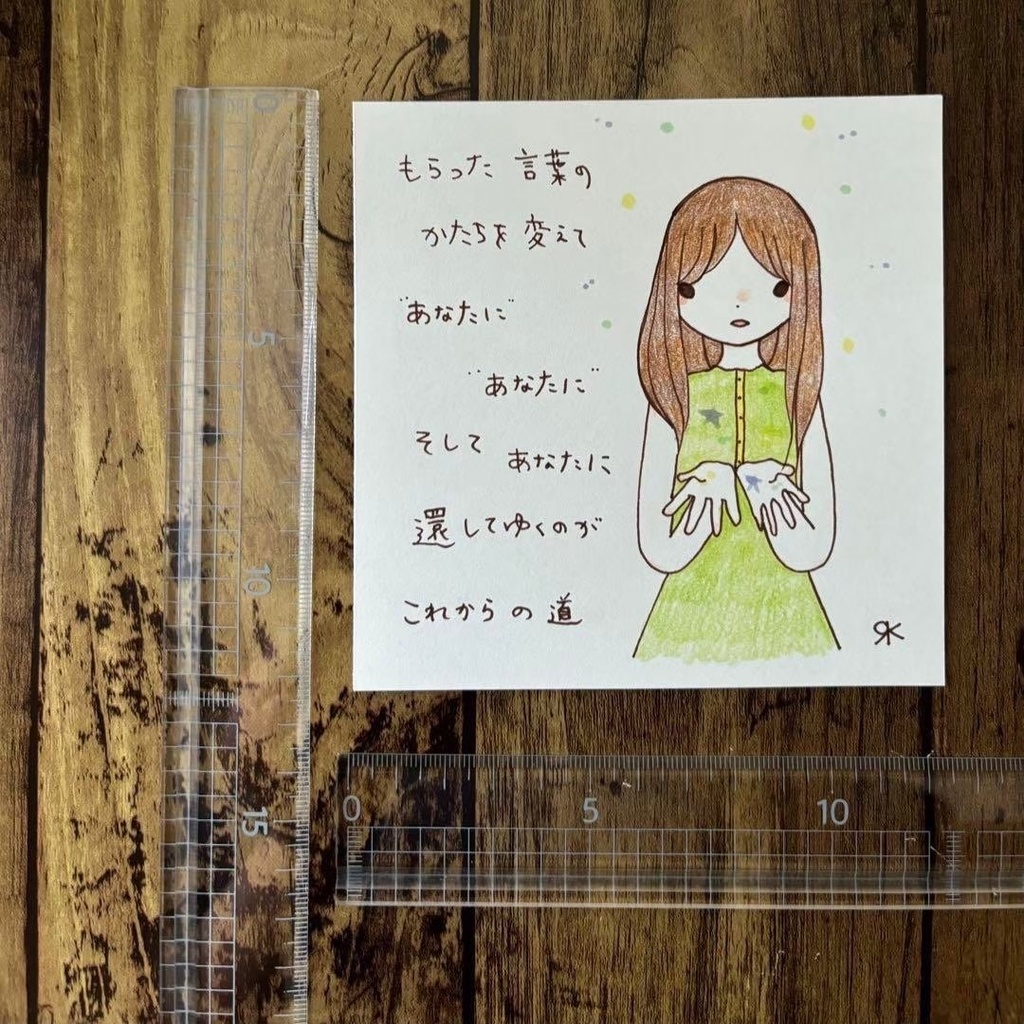 もらった 言葉の
かたちを 変えて
"あなたに"
"あなたに"
そして あなたに
還してゆくのが
これからの 道
RK
0
5
10
15
0 5 10